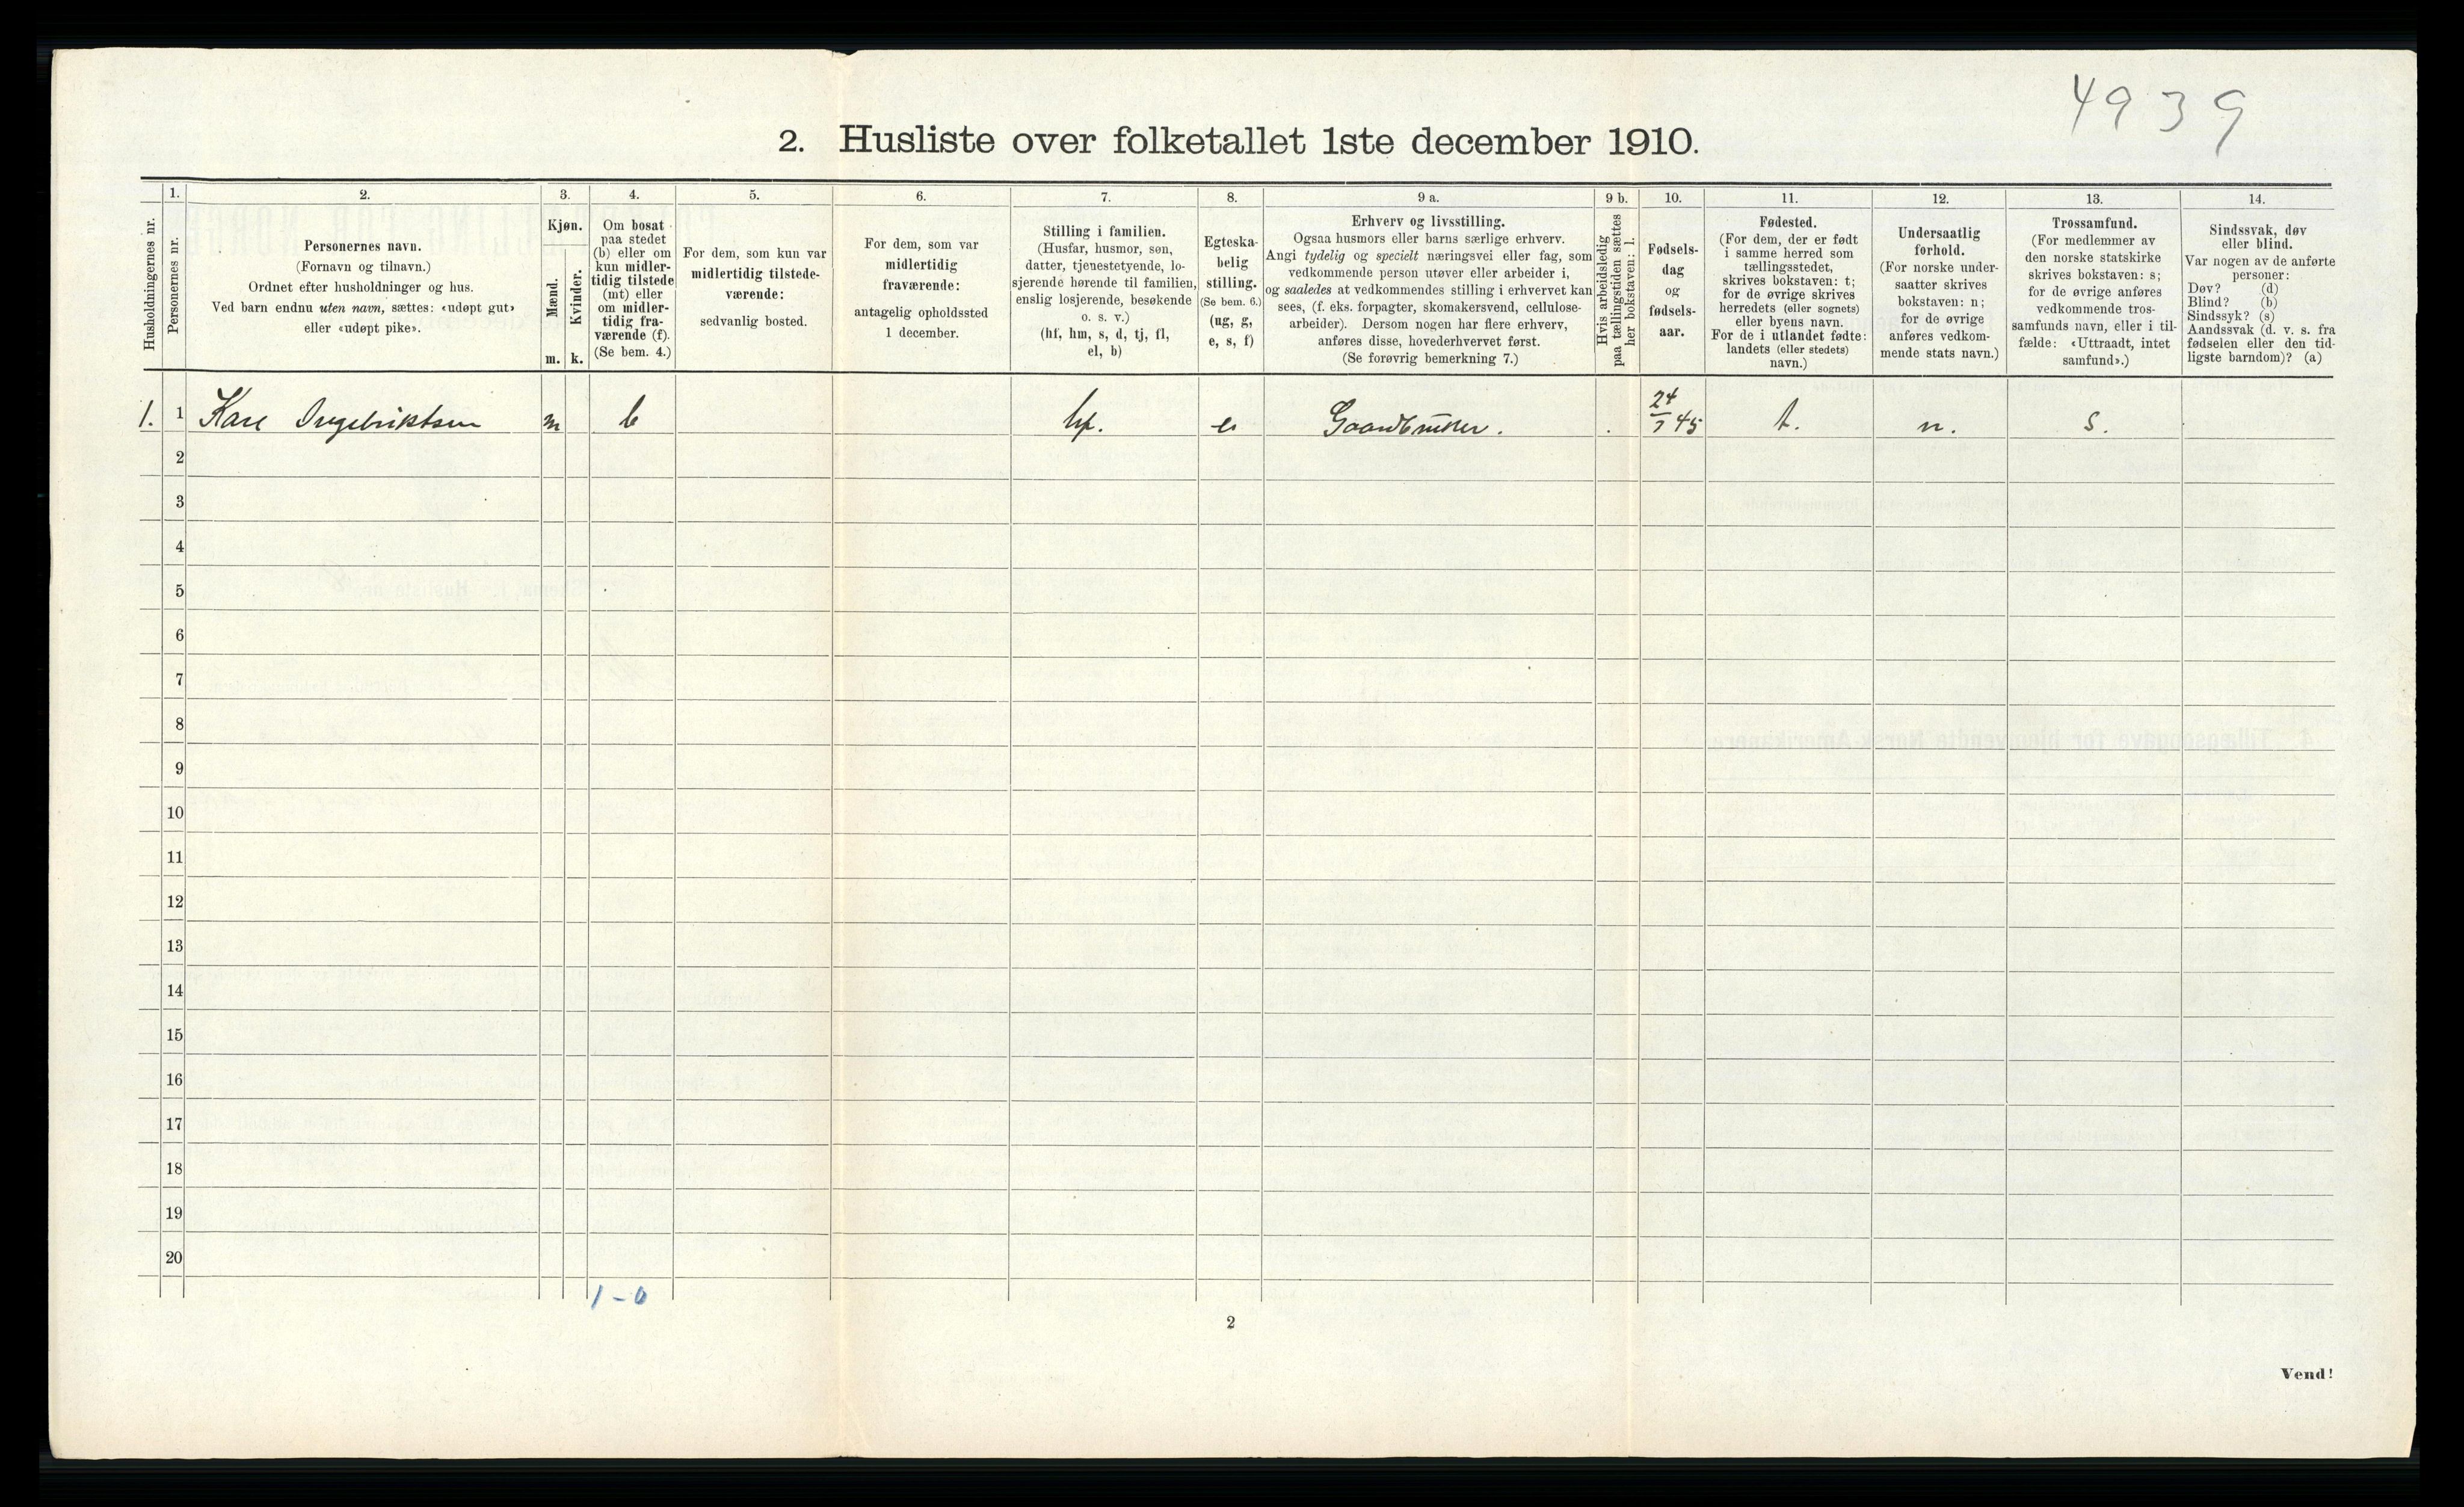 4939
2. Husliste over folketallet 1ste december 1910.
Husholdningernes nr.
1.
Personernes nr.
2.
Personernes navn.
(Fornavn og tilnavn.)
Ordnet efter husholdninger og hus.
Ved barn endnu uten navn, sættes: «udøpt gut»
eller «udøpt pike».
3.
Kjøn.
Mænd.
Kvinder.
m. k.
4.
Om bosat
paa stedet
(b) eller om
kun midler-
tidig tilstede
(mt) eller
om midler-
tidig fra-
værende (f).
(Se bem. 4.)
5.
For dem, som kun var
midlertidig tilstede-
værende:
sedvanlig bosted.
6.
For dem, som var
midlertidig
fraværende:
antagelig opholdssted
1 december.
7.
Stilling i familien.
(Husfar, husmor, søn,
datter, tjenestetyende, lo-
sjerende hørende til familien,
enslig losjerende, besøkende
o. s. v.)
(hf, hm, s, d, tj, fl,
el, b)
8.
Egteska-
belig
stilling.
(Se bem. 6.)
(ug, g,
e, s, f)
9 a.
Erhverv og livsstilling.
Ogsaa husmors eller barns særlige erhverv.
Angi tydelig og specielt næringsvei eller fag, som
vedkommende person utøver eller arbeider i,
og saaledes at vedkommendes stilling i erhvervet kan
sees, (f. eks. forpagter, skomakersvend, cellulose-
arbeider). Dersom nogen har flere erhverv,
anføres disse, hovederhvervet først.
(Se forøvrig bemerkning 7.)
9 b.
Hvis arbeidsledig
paa tællingstiden sættes
her bokstaven: l.
10.
Fødsels-
dag
og
fødsels-
aar.
11.
Fødested.
(For dem, der er født
i samme herred som
tællingsstedet,
skrives bokstaven: t;
for de øvrige skrives
herredets (eller sognets)
eller byens navn.
For de i utlandet fødte:
landets (eller stedets)
navn.)
12.
Undersaatlig
forhold.
(For norske under-
saatter skrives
bokstaven: n;
for de øvrige
anføres vedkom-
mende stats navn.)
13.
Trossamfund.
(For medlemmer av
den norske statskirke
skrives bokstaven: s;
for de øvrige anføres
vedkommende tros-
samfunds navn, eller i til-
fælde: «Uttraadt, intet
samfund».)
14.
Sindssvak, døv
eller blind.
Var nogen av de anførte
personer:
Døv? (d)
Blind? (b)
Sindssyk? (s)
Aandssvak (d. v. s. fra
fødselen eller den tid-
ligste barndom)? (a)
1. 1 Karl Ingebriktsen m b hf. e Gaardbruker. 24/7 45 t. n. s.
2
3
4
5
6
7
8
9
10
11
12
13
14
15
16
17
18
19
20
1 - 0
2
Vend!